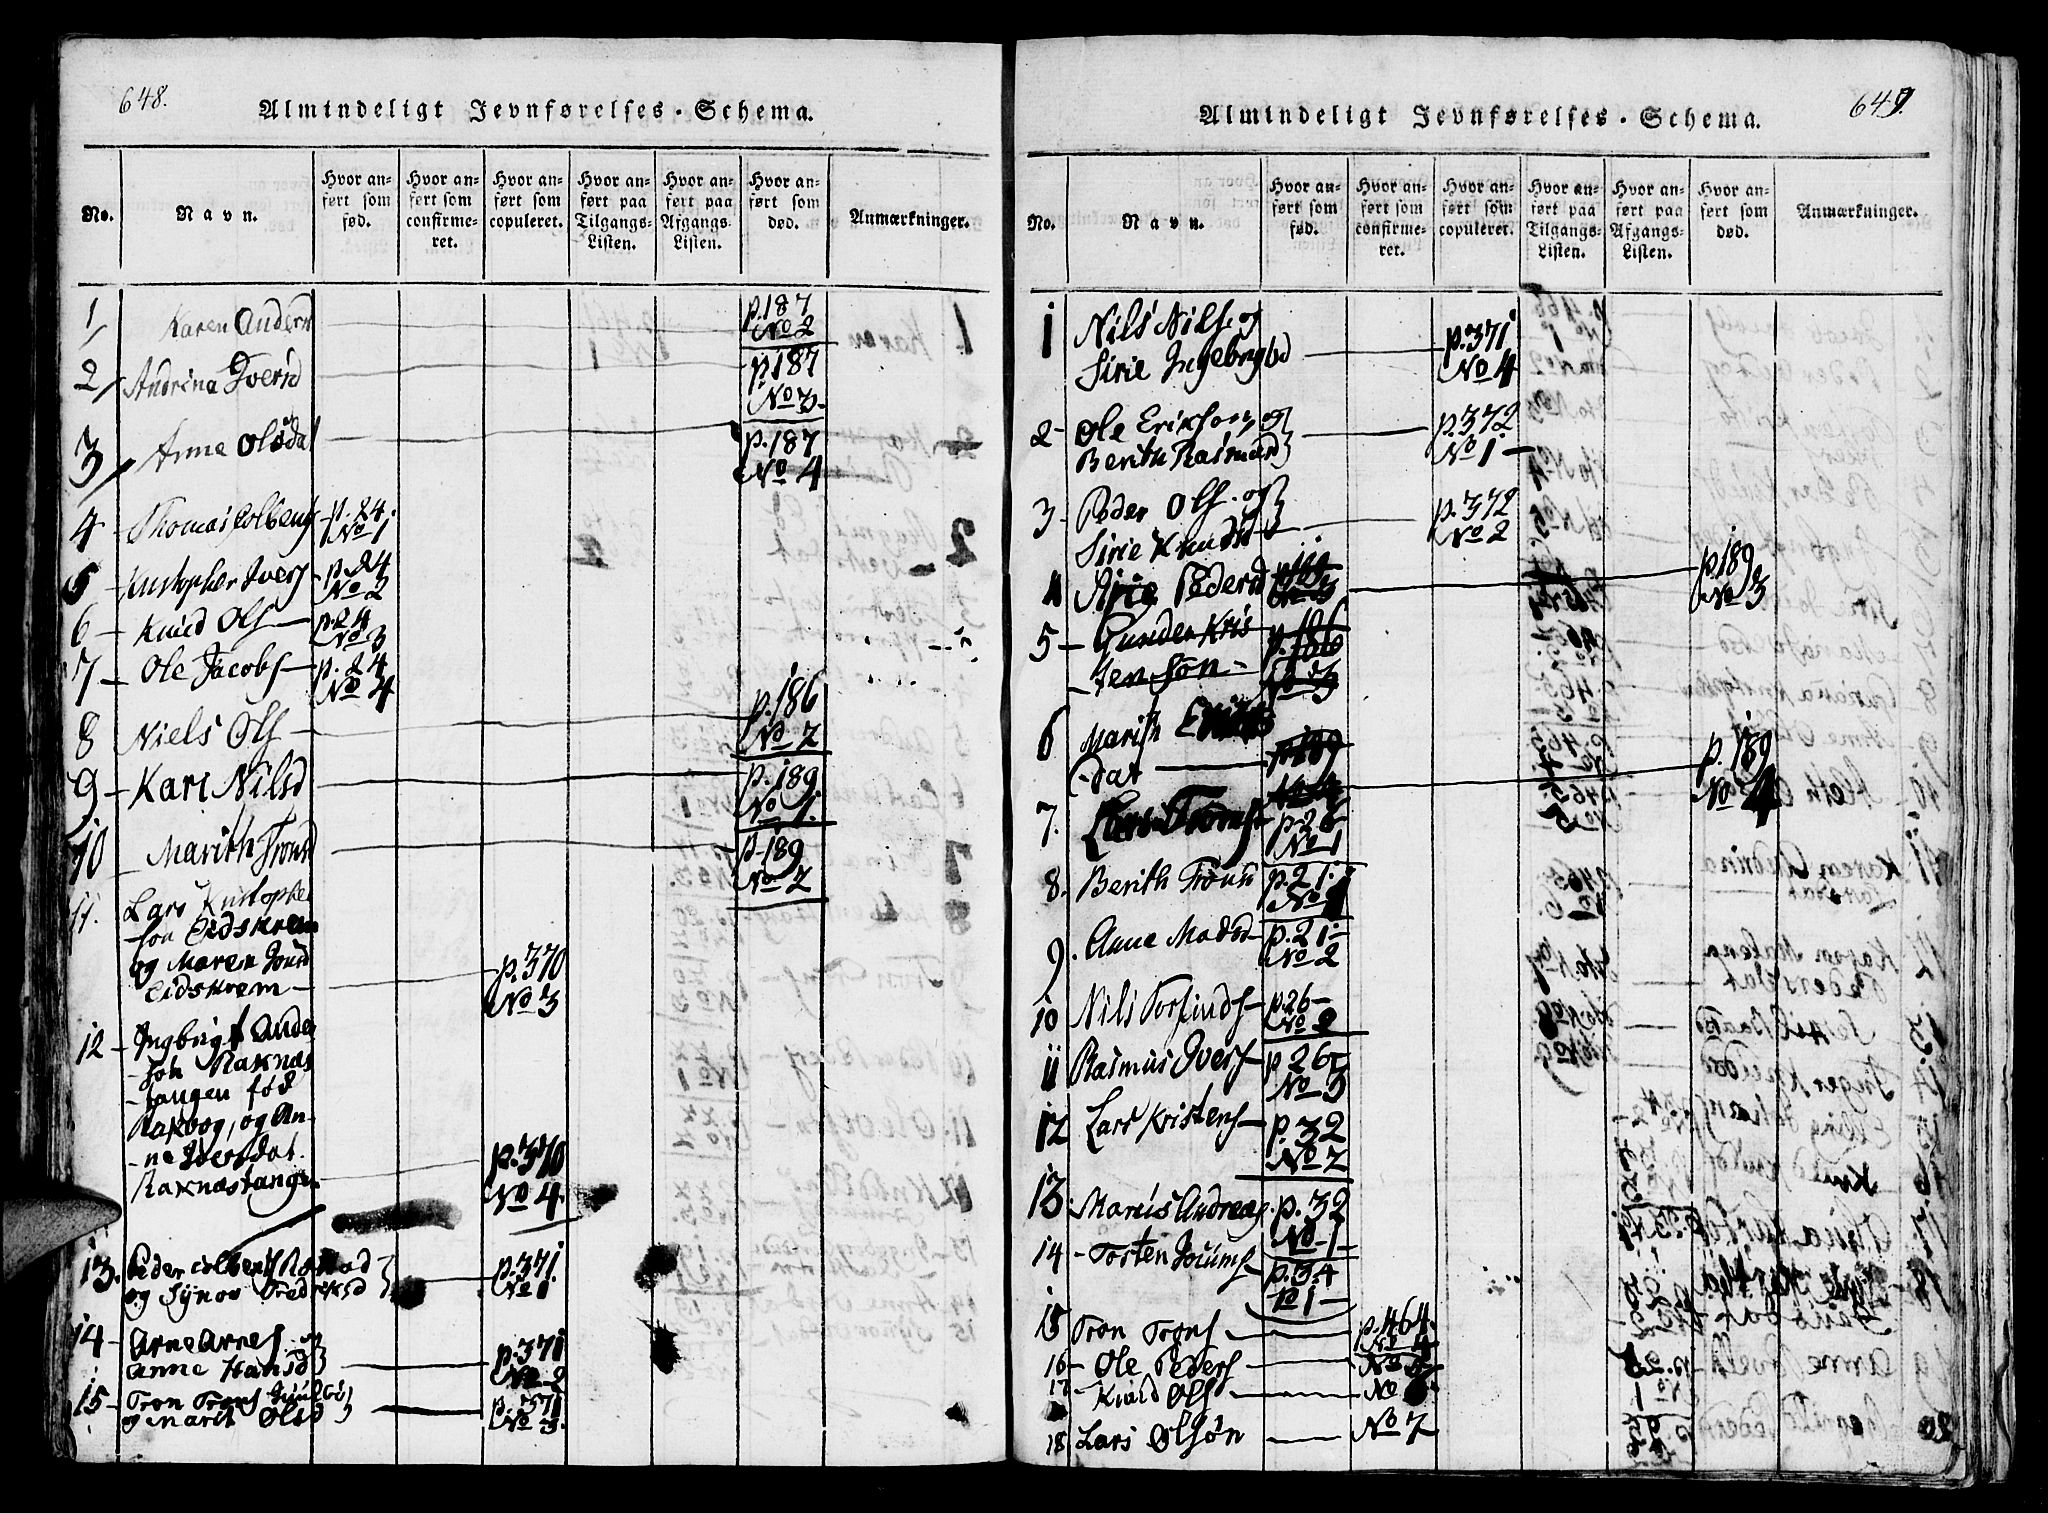 648.
Almindeligt Jevnførelses-Schema.
No.
Navn.
Hvor an-
ført som
fød.
Hvor an-
ført som
confirme-
ret.
Hvor an-
ført som
copuleret.
Hvor an-
ført paa
Tilgangs-
Listen.
Hvor an-
ført paa
Afgangs-
Listen.
Hvor an-
ført som
død.
Anmærkninger.
1 Karen Andersd p.187
No 2
2 Andrina Iversd p.187
No 3.
3 Anne Olsdat p.187
No 4
4 Thomas Colbens p. 24.
No 1
5 Kristopher Ivers p. 24
No 2
6 Knud Ols p. 24
No 3
7 Ole Jacobs p. 24
No 4
8 Niels Ols p. 186
No 2
9 Kari Nilsd p. 189
No 1.
10 Marith Tronsd p. 189
No. 2
11. Lars Kristophe
son Eidskrem
og Maren Jonsd
Eidskrem p.370
No 3
12 Ingbrigt Ander
son Raknes
tangen fød
Rakvog, og An-
ne Iversdat.
Raknestangen p.370
No 4.
13. Peder Colbens
og Synov Fredriksd p.371.
No 1.
14 Arne Arnes. og
Anne Hansd p.371
No 2
15 Tron Trons
og Marit Olsd p.371
No 3.
649.
Almindeligt Jevnførelses-Schema.
No.
Navn.
Hvor an-
ført som
fød.
Hvor an-
ført som
confirme-
ret.
Hvor an-
ført som
copuleret.
Hvor an-
ført paa
Tilgangs-
Listen.
Hvor an-
ført paa
Afgangs-
Listen.
Hvor an-
ført som
død.
Anmærkninger.
1 Nils Nils. og
Sirie Ingebrgtsd p.371
No 4
2 Ole Erikson og
Berith Rasmusd p.372
No 1
3 Peder Ols. og
Sirie Knudsd p.372
No 2
4 Sirie Pedersd p.189
No 3
5 Gunder Kris
tenson p. 186
No 3
6 Marith
dat p. 189
No 4
7. Lars Trons p. 26
No 1
8. Berith Trons p. 21.
No 1
9. Anne Madsd p. 21
No 2
10 Nils Torfinds p. 26
No 2
11 Rasmus Ivers p. 26
No 3
12 Lars Kristens p. 32
No 2
13. Marius Andreas p. 32
No 1
14 Tosten Joums p. 34
No 1
15 Tron Trons p.464.
No 4
16 Ole Peders No 5
17 Knud Ols No 6
18 Lars Olsøn No 7